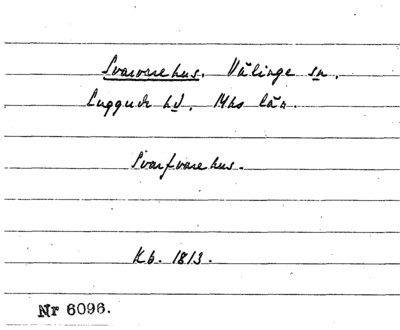 Svarvarehus. Välinge sn.
Luggude hd. Mhs län.
Svarfvarehus.
Kb. 1813.
Nr 6096.